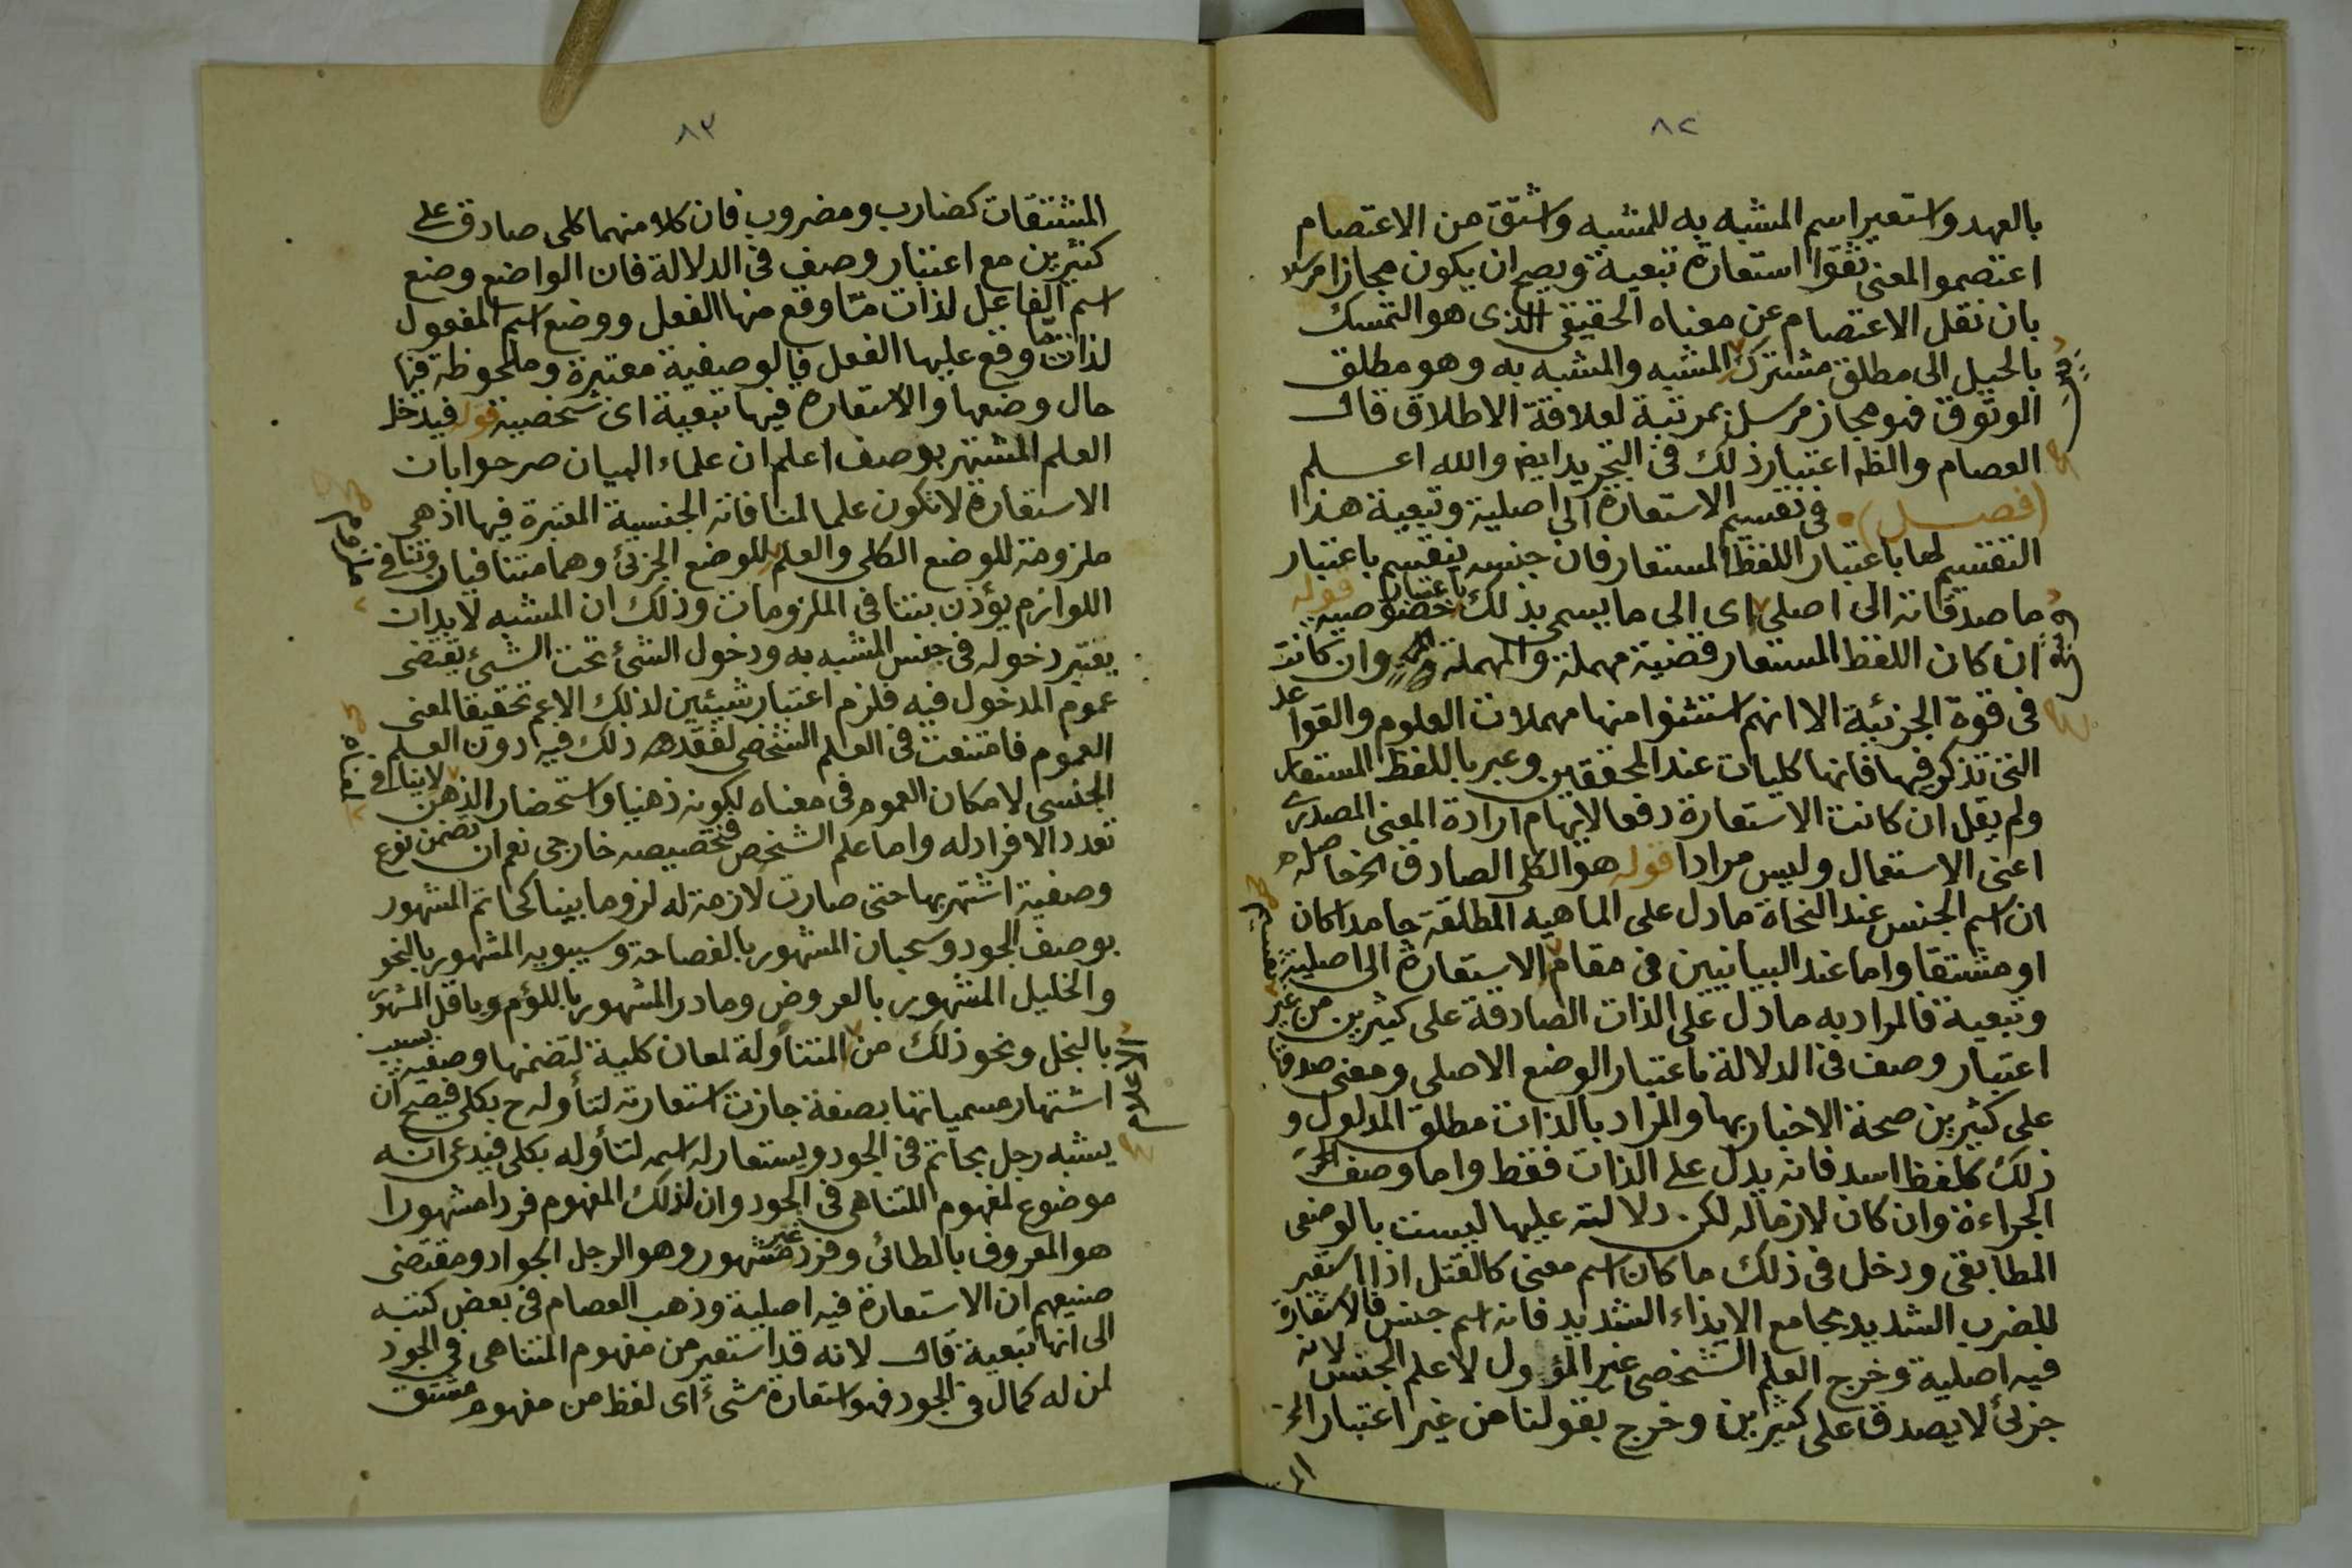 ٨٢
بالعهد واستعير اسم المشبه به للمشبه واشتق من الاعتصام
اعتصموا المعنى ثقوا استعارة تبعية ويصح ان يكون مجازا مرسلا
بان نقل الاعتصام عن معناه الحقيقى الذى هو التمسك
بالحبل الى مطلق مشترك المشبه والمشبه به وهو مطلق
الوثوق فهو مجاز مرسل بمرتبة لعلاقة الاطلاق قال
العصام والظ اعتبار ذلك فى التجريد ايض والله اعلم
(فصل) فى تقسيم الاستعارة الى اصلية وتبعية هذا
التقسيم لها باعتبار اللفظ المستعار فان جنسه ينقسم باعتبار
ما صدقاته الى اصلى اى الى ما يسمى بذلك باعتبار خصوصيته قوله
ان كان اللفظ المستعار قضية مهملة والمهملة وان كانت
فى قوة الجزئية الا انهم استثنوا منها مهملات العلوم والقواعد
التى تذكر فيها فانها كليات عند المحققين وعبر باللفظ المستعار
ولم يقل ان كانت الاستعارة دفعا لايهام ارادة المعنى المصدرى
اعنى الاستعمال وليس مرادا قوله هو الكلى الصادق الخ حاصله
ان اسم الجنس عند النحاة ما دل على الماهية المطلقة جامدا كان
او مشتقا واما عند البيانيين فى مقام تقسيم الاستعارة الى اصلية
وتبعية فالمراد به ما دل على الذات الصادقة على كثيرين من غير
اعتبار وصف فى الدلالة باعتبار الوضع الاصلى ومعنى صدقها
على كثيرين صحة الاخبار بها والمراد بالذات مطلق المدلول و
ذلك كلفظ اسد فانه يدل على الذات فقط واما وصف
الجراءة وان كان لازما له لكن دلالته عليها ليست بالوضعى
المطابقى ودخل فى ذلك ما كان اسم معنى كالقتل اذا استعير
للضرب الشديد بجامع الايذاء الشديد فانه اسم جنس فالاستعارة
فيه اصلية وخرج العلم الشخصى غير المؤول لا علم الجنس لانه
جزئى لا يصدق على كثيرين وخرج بقولنا من غير اعتبار الخ
٨٣
المشتقات كضارب ومضروب فان كلا منهما كلى صادق على
كثيرين مع اعتبار وصف فى الدلالة فان الواضع وضع
اسم الفاعل لذات ما وقع منها الفعل ووضع اسم المفعول
لذات ما وقع عليها الفعل فالوصفية معتبرة وملحوظة فيها
حال وضعها والاستعارة فيها تبعية اى شخصية قوله فيدخل
العلم المشتهر بوصف اعلم ان علماء البيان صرحوا بان
الاستعارة لا تكون علما لمنافاته الجنسية المعتبرة فيها اذ هى
ملزومة للوضع الكلى والعلم ملزوم للوضع الجزئى وهما متنافيان وتنافى
اللوازم يؤذن بتنافى الملزومات وذلك ان المشبه لا بد ان
يعتبر دخوله فى جنس المشبه به ودخول الشئ تحت الشئ يقتضى
عموم المدخول فيه فلزم اعتبار شيئين لذلك الاعم تحقيقا لمعنى
العموم فامتنعت فى العلم الشخصى لفقد ذلك فيه دون العلم
الجنسى لامكان العموم فى معناه لكونه ذهنيا واستحضار الذهن لا ينافى
تعدد الافراد له واما علم الشخص فتخصيصه خارجى نعم ان تضمن نوع
وصفية اشتهر بها حتى صارت لازمة له لزوما بينا كحاتم المشهور
بوصف الجود وسحبان المشهور بالفصاحة وسيبويه المشهور بالنحو
والخليل المشهور بالعروض ومادر المشهور باللؤم وباقل المشهور
بالبخل ونحو ذلك من الاعلام المتناولة لمعان كلية لتضمنها وصفية بسبب
اشتهار مسمياتها بصفة جازت استعارته لتأوله ح بكلى فيصح ان
يشبه رجل بحاتم فى الجود ويستعار له اسمه لتأوله بكلى فيدعى انه
موضوع لمفهوم المتناهى فى الجود وان لذلك المفهوم فردا مشهورا
هو المعروف بالطائى وفرد غير مشهور وهو الرجل الجواد ومقتضى
صنيعهم ان الاستعارة فيه اصلية وذهب العصام فى بعض كتبه
الى انها تبعية قال لانه قد استعير من مفهوم المتناهى فى الجود
لمن له كمال فى الجود فهو استعارة شئ اى لفظ من مفهوم مشتق